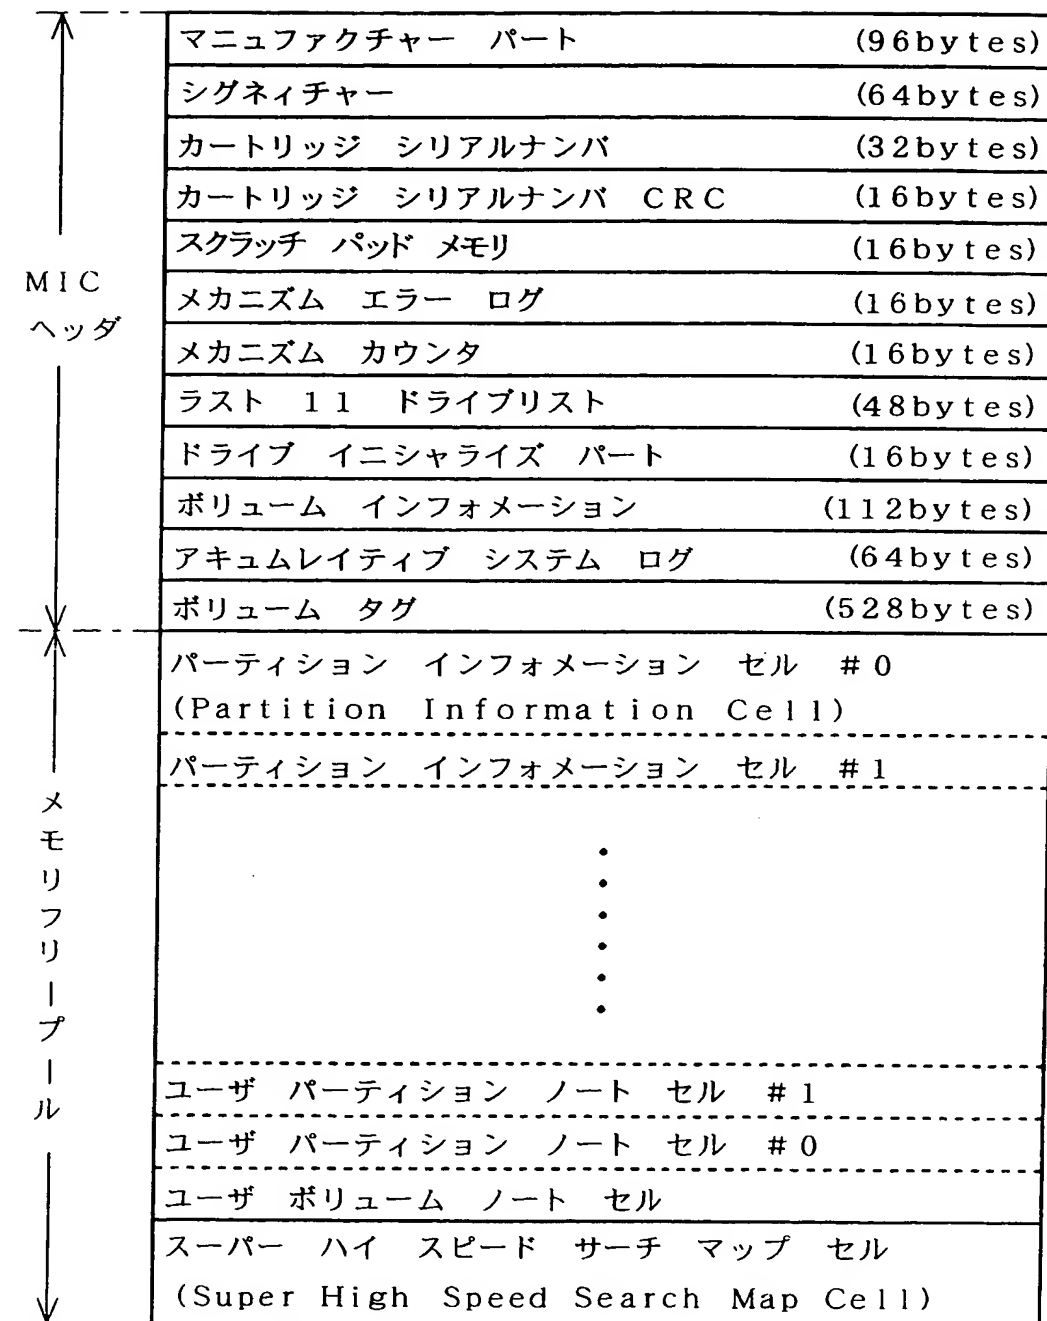 マニュファクチャー パート (96bytes)
シグネィチャー (64bytes)
カートリッジ シリアルナンバ (32bytes)
カートリッジ シリアルナンバ CRC (16bytes)
スクラッチ パッド メモリ (16bytes)
メカニズム エラー ログ (16bytes)
メカニズム カウンタ (16bytes)
ラスト 11 ドライブリスト (48bytes)
ドライブ イニシャライズ パート (16bytes)
ボリューム インフォメーション (112bytes)
アキュムレイティブ システム ログ (64bytes)
ボリューム タグ (528bytes)
MIC
ヘッダ
パーティション インフォメーション セル #0
(Partition Information Cell)
パーティション インフォメーション セル #1
ユーザ パーティション ノート セル #1
ユーザ パーティション ノート セル #0
ユーザ ボリューム ノート セル
スーパー ハイ スピード サーチ マップ セル
(Super High Speed Search Map Cell)
メモリフリープール